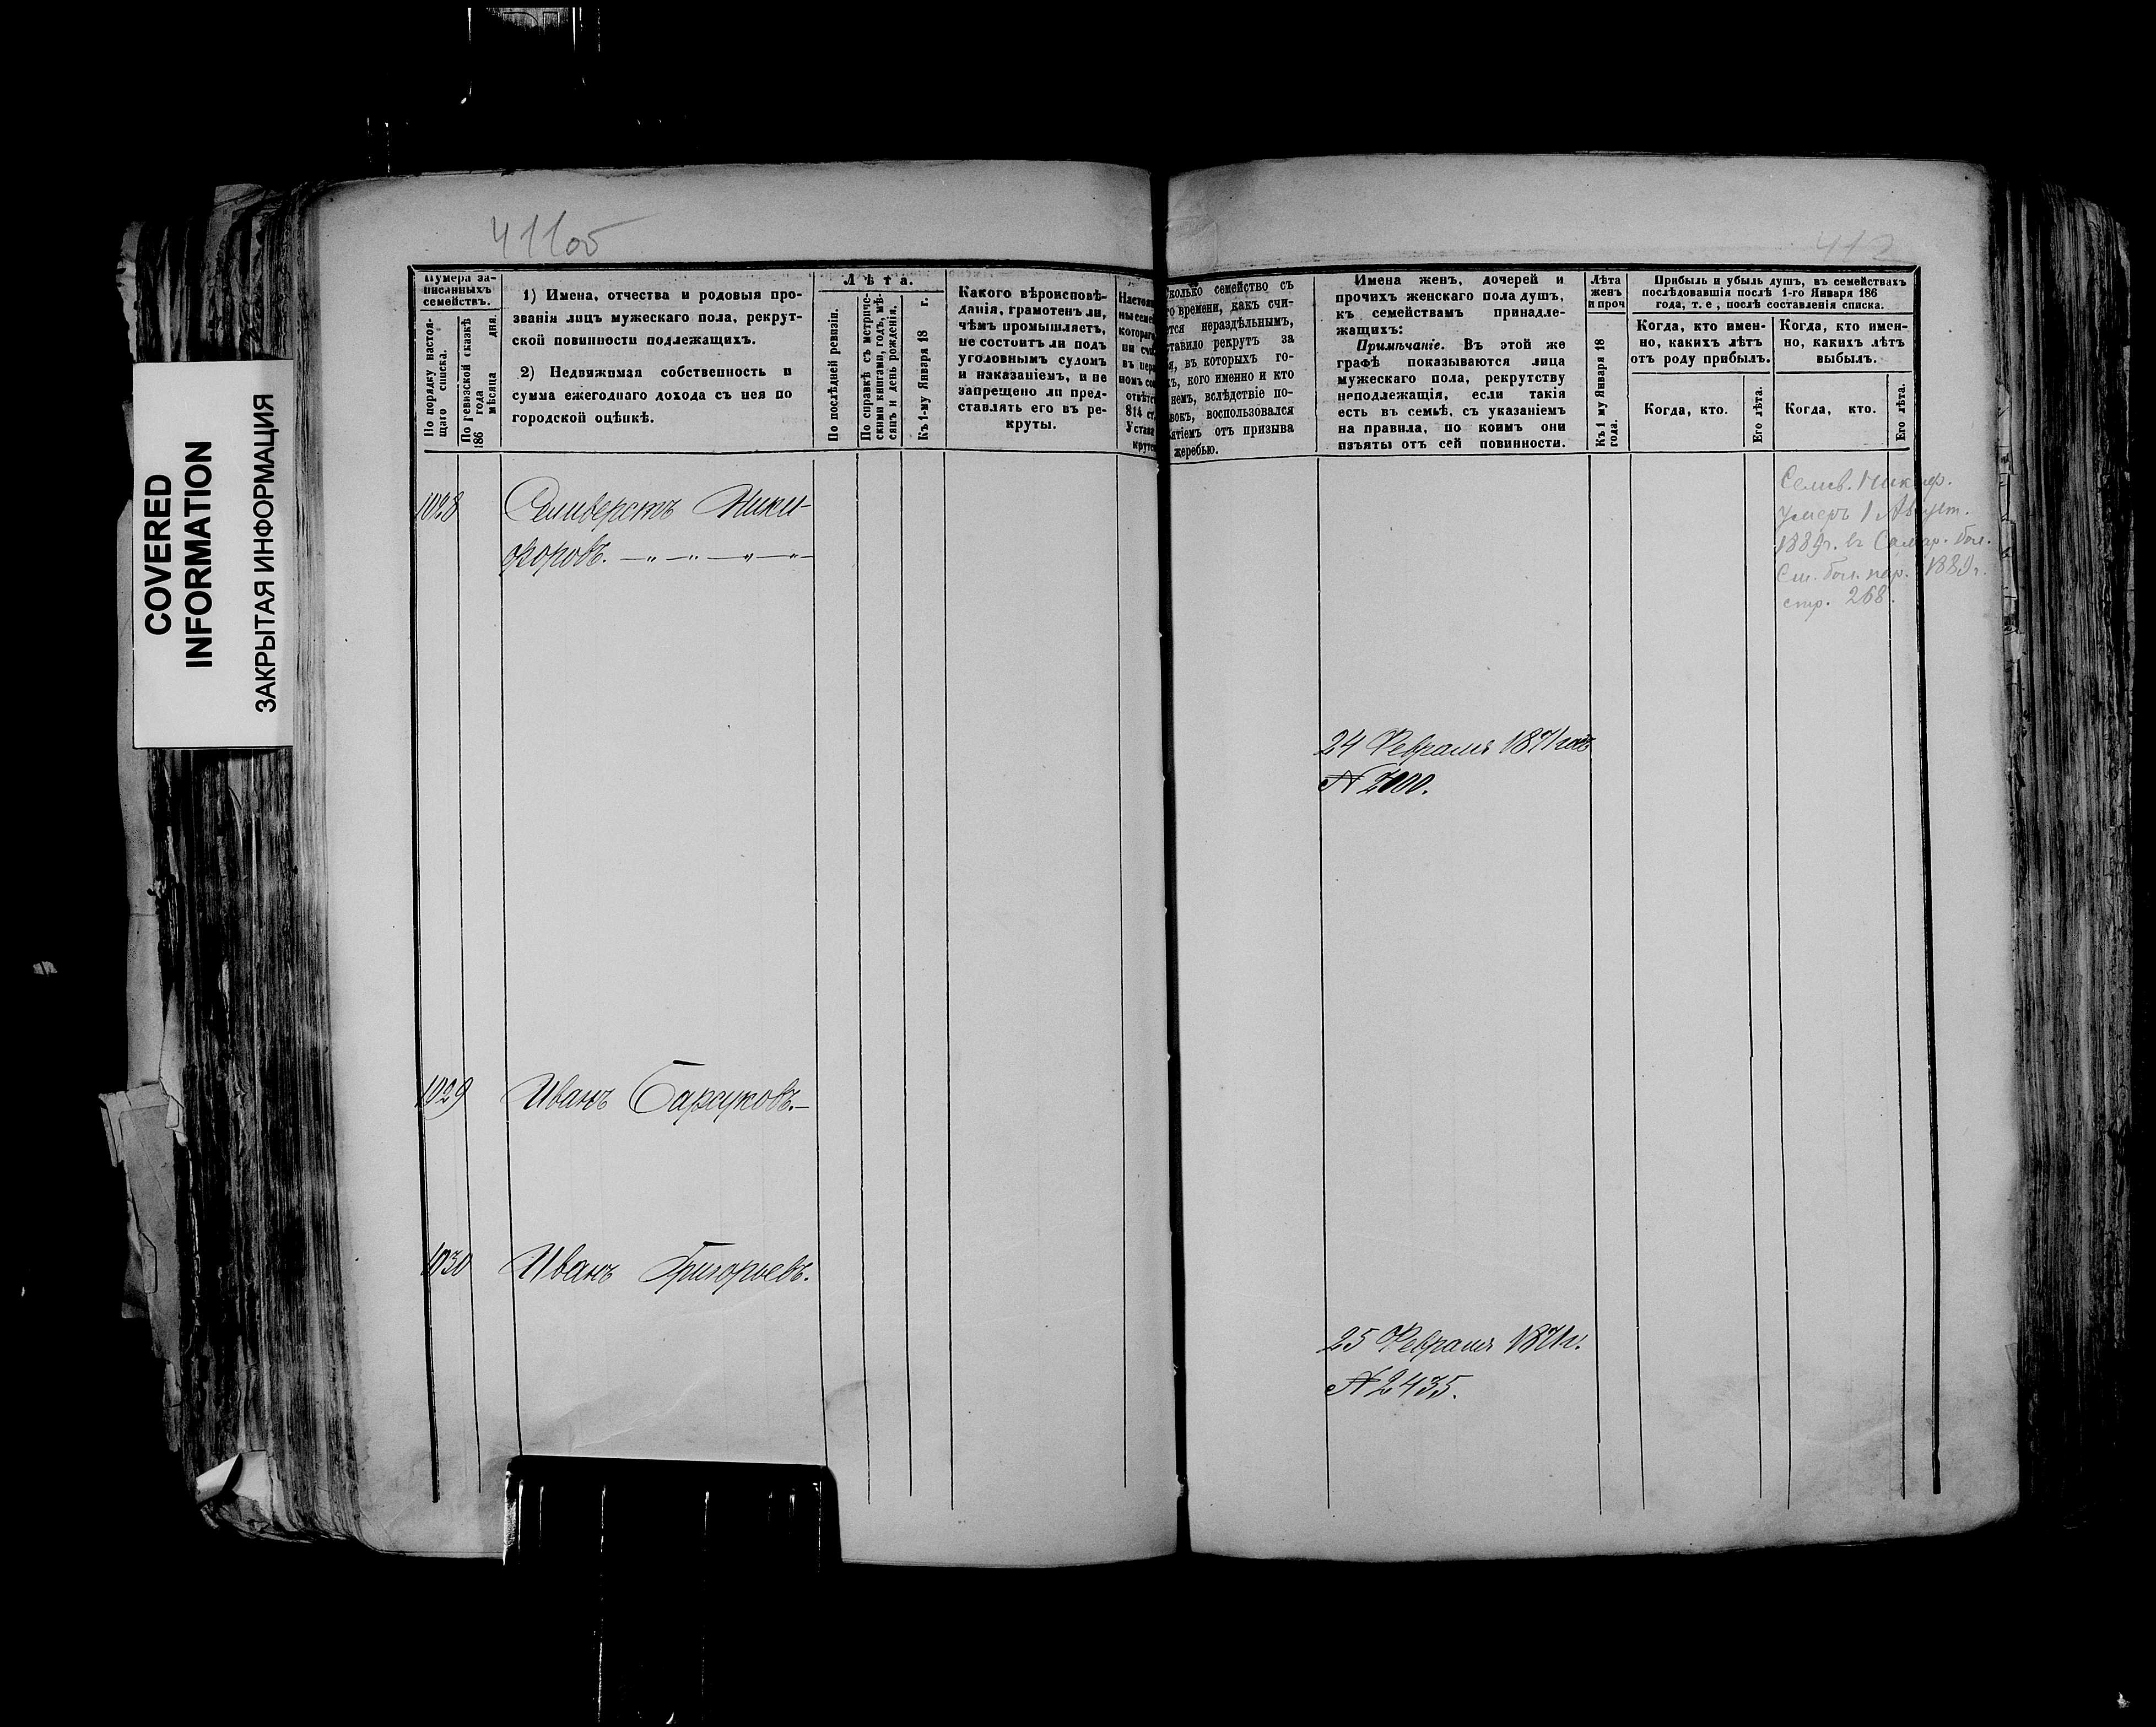 COVERED
INFORMATION
ЗАКРЫТАЯ ИНФОРМАЦИЯ
411об
Нумера за-
писанныхъ
семействъ.
По порядку настоя-
щаго списка.
По ревизской сказкѣ
186 года мѣсяца дня.
1) Имена, отчества и родовыя про-
званія лицъ мужескаго пола, рекрут-
ской повинности подлежащихъ.
2) Недвижимая собственность и
сумма ежегоднаго дохода съ нея по
городской оцѣнкѣ.
Лѣта.
По послѣдней ревизіи.
По справкѣ съ метриче-
скими книгами, годъ, мѣ-
сяцъ и день рожденія.
Къ 1-му Января 18 г.
Какого вѣроисповѣ-
данія, грамотенъ ли,
чѣмъ промышляетъ,
не состоитъ ли подъ
уголовнымъ судомъ
и наказаніемъ, и не
запрещено ли пред-
ставлять его въ ре-
круты.
1028 Селиверстъ Ники-
форовъ.
1029 Иванъ Барсуковъ.
1030 Иванъ Григорьевъ.
412
семейство съ
времени, какъ счи-
нераздѣльнымъ,
рекрутъ за
въ которыхъ го-
кого именно и кто
вслѣдствіе по-
воспользовался
отъ призыва
жеребью.
Имена женъ, дочерей и
прочихъ женскаго пола душъ,
къ семействамъ принадле-
жащихъ:
Примѣчаніе. Въ этой же
графѣ показываются лица
мужескаго пола, рекрутству
неподлежащія, если такія
есть въ семьѣ, съ указаніемъ
на правила, по коимъ они
изъяты отъ сей повинности.
Лѣта
женъ
и проч
Къ 1 му Января 18
года.
Прибыль и убыль душъ, въ семействахъ
послѣдовавшія послѣ 1-го Января 186
года, т. е, послѣ составленія списка.
Когда, кто имен-
но, какихъ лѣтъ
отъ роду прибылъ.
Когда, кто.
Его лѣта.
Когда, кто имен-
но, какихъ лѣтъ
выбылъ.
Когда, кто.
Его лѣта.
Селив. Никиф.
умеръ 1 Август.
1889г. въ Самар. бол.
См. бол. 1889г.
стр. 268.
24 Февраля 1871 года
№ 2000.
25 Февраля 1871 г.
№ 2435.